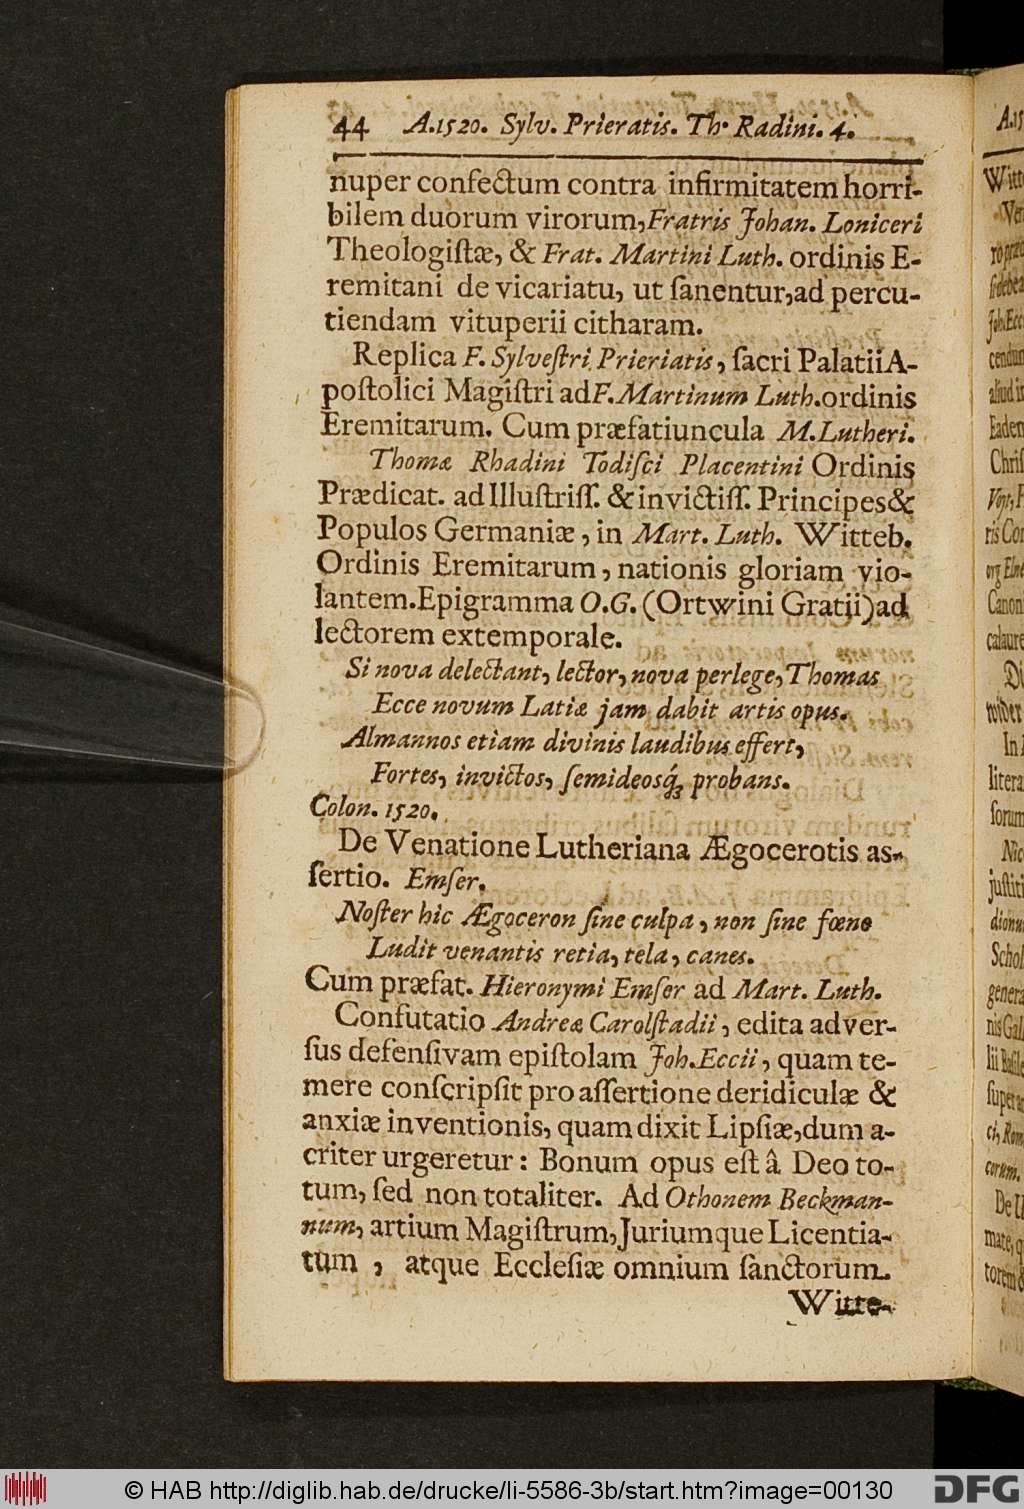 44 A.1520. Sylv. Prieratis. Th. Radini. 4.
nuper confectum contra infirmitatem horri-
bilem duorum virorum, Fratris Johan. Loniceri
Theologiſtæ, & Frat. Martini Luth. ordinis E-
remitani de vicariatu, ut ſanentur, ad percu-
tiendam vituperii citharam.
Replica F. Sylveſtri Prieriatis, ſacri Palatii A-
poſtolici Magiſtri ad F. Martinum Luth. ordinis
Eremitarum. Cum præfatiuncula M. Lutheri.
Thomæ Rhadini Todiſci Placentini Ordinis
Prædicat. ad Illuſtriſſ. & invictiſſ. Principes &
Populos Germaniæ, in Mart. Luth. Witteb.
Ordinis Eremitarum, nationis gloriam vio-
lantem. Epigramma O.G. (Ortwini Gratii) ad
lectorem extemporale.
Si nova delectant, lector, nova perlege, Thomas
Ecce novum Latiæ jam dabit artis opus.
Almannos etiam divinis laudibus effert,
Fortes, invictos, ſemideosq́; probans.
Colon. 1520.
De Venatione Lutheriana Ægocerotis as-
ſertio. Emſer.
Noſter hic Ægoceron ſine culpa, non ſine fœno
Ludit venantis retia, tela, canes.
Cum præfat. Hieronymi Emſer ad Mart. Luth.
Confutatio Andreæ Carolſtadii, edita adver-
ſus defenſivam epiſtolam Joh. Eccii, quam te-
mere conſcripſit pro aſſertione deridiculæ &
anxiæ inventionis, quam dixit Lipſiæ, dum a-
criter urgeretur: Bonum opus eſt â Deo to-
tum, ſed non totaliter. Ad Othonem Beckman-
num, artium Magiſtrum, Juriumque Licentia-
tum, atque Eccleſiæ omnium ſanctorum
Witte-
© HAB http://diglib.hab.de/drucke/li-5586-3b/start.htm?image=00130
DFG